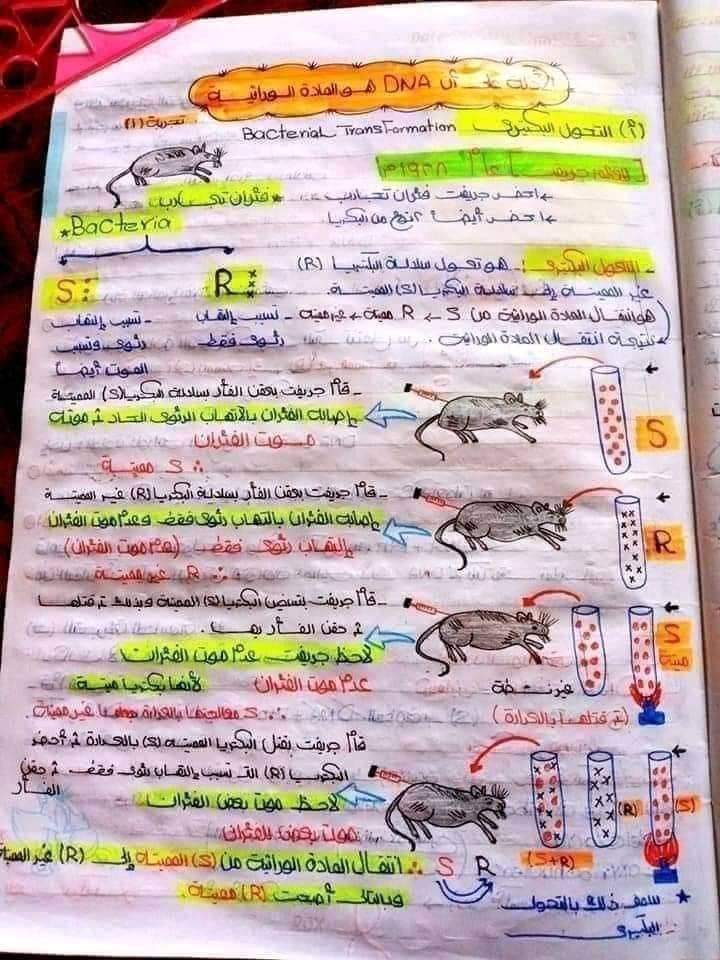 الأدلة على أن DNA هو المادة الوراثية
تجربة (1)
(أ) التحول البكتيري Bacterial Transformation
[للعالم جريفث] عام ١٩٢٨م
- احضر جريفث فئران تجارب
* فئران تجارب
- احضر أيضاً من البكتريا
* Bacteria
S:
R
- التحول البكتيري: هو تحول سلالة البكتريا (R)
غير المميتة إلى سلالة البكتريا (S) المميتة.
هو انتقال المادة الوراثية من S ← R مميتة ← غير مميتة
نتيجة انتقال المادة الوراثية.
- تسبب إلتهاب
رئوى فقط
- تسبب إلتهاب
رئوى وتسبب
الموت أيضاً
S
- قام جريفث بحقن الفأر بسلالة البكتريا (S) المميتة
إصابة الفئران بالالتهاب الرئوى الحاد ثم موته
موت الفئران
∴ S مميتة
R
- قام جريفث بحقن الفأر بسلالة البكتريا (R) غير المميتة
إصابة الفئران بالتهاب رئوى فقط وعدم موت الفئران
إلتهاب رئوى فقط (عدم موت الفئران)
∴ R غير مميتة
S
ميتة
- قام جريفث بتسخين البكتريا (S) المميتة وبذلك تم قتلها
ثم حقن الفأر بها.
لاحظ جريفث عدم موت الفئران
عدم موت الفئران لأنها بكتريا ميتة
∴ S معالجتها بالحرارة جعلها غير مميتة.
غير نشطة
(تم قتلها بالحرارة)
قام جريفث بقتل البكتريا المميتة (S) بالحرارة ثم أحضر
البكتريا (R) التى تسبب إلتهاب رئوى فقط ثم حقن
الفأر
لاحظ موت بعض الفئران
موت بعض الفئران
(S)
(R)
(S+R)
∴ انتقال المادة الوراثية من (S) المميتة إلى (R) غير المميتة
وبالتالى أصبحت (R) مميتة.
S R
* سمى ذلك بالتحول
البكتيرى